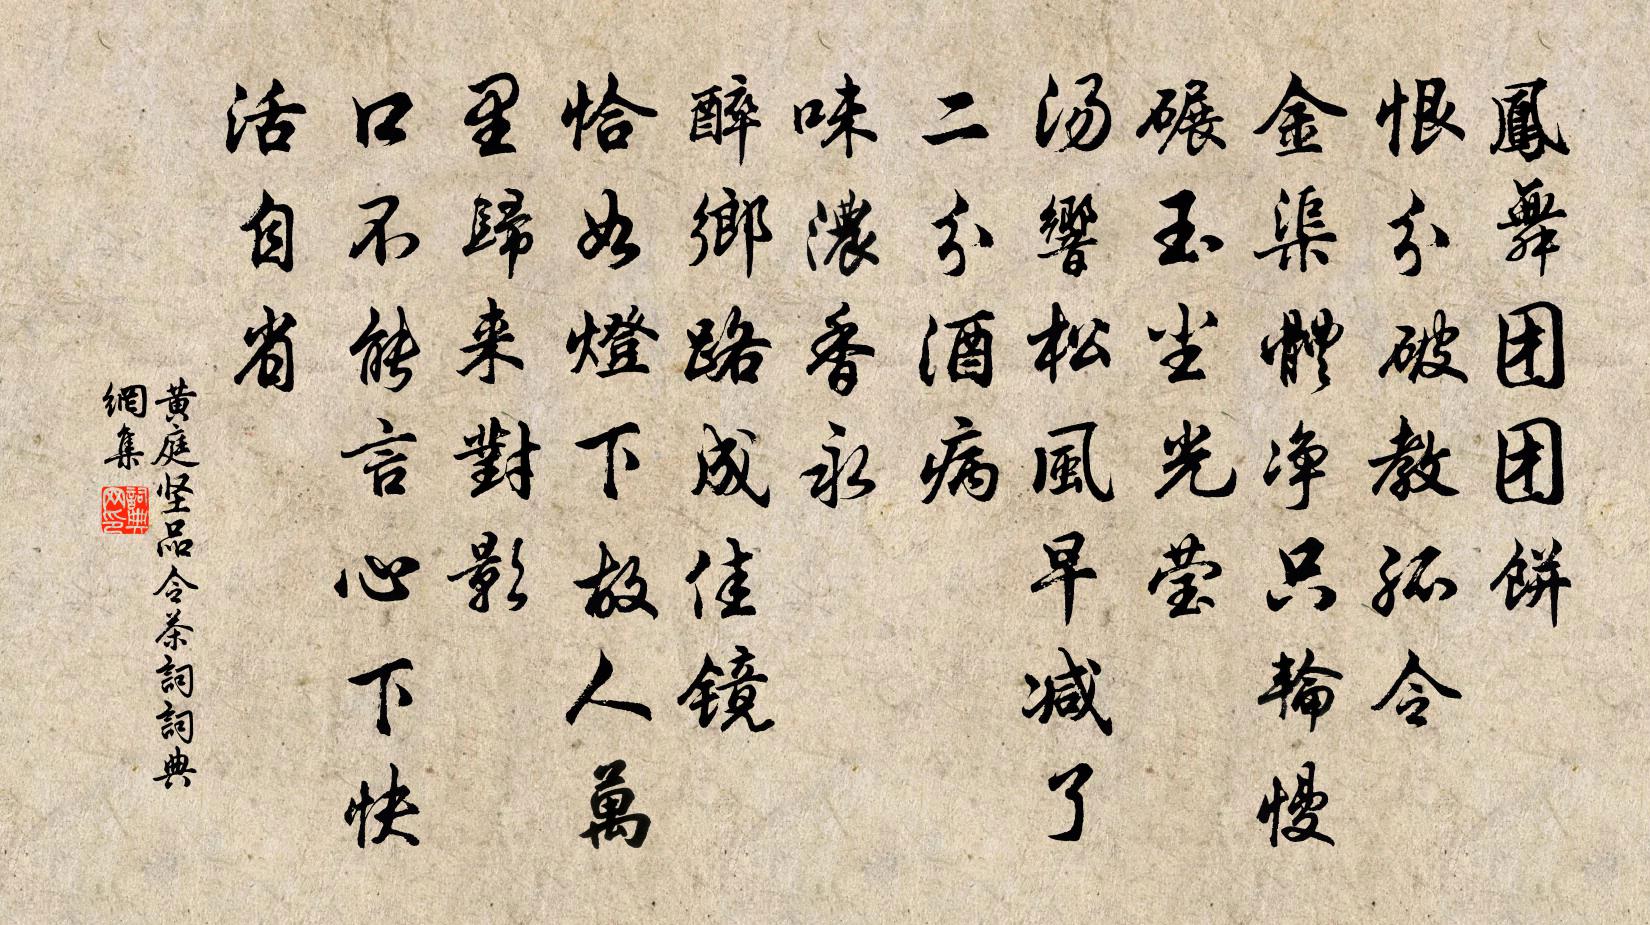 鳳舞团团餅
恨分破教孤令
金渠體净只輪慢
碾玉尘光莹
汤響松風早减了
二分酒病
味濃香永
醉鄉路成佳镜
恰如燈下故人萬
里歸来對影
口不能言心下快
活自省
黄庭坚品令茶詞詞典
網集
詞典网印